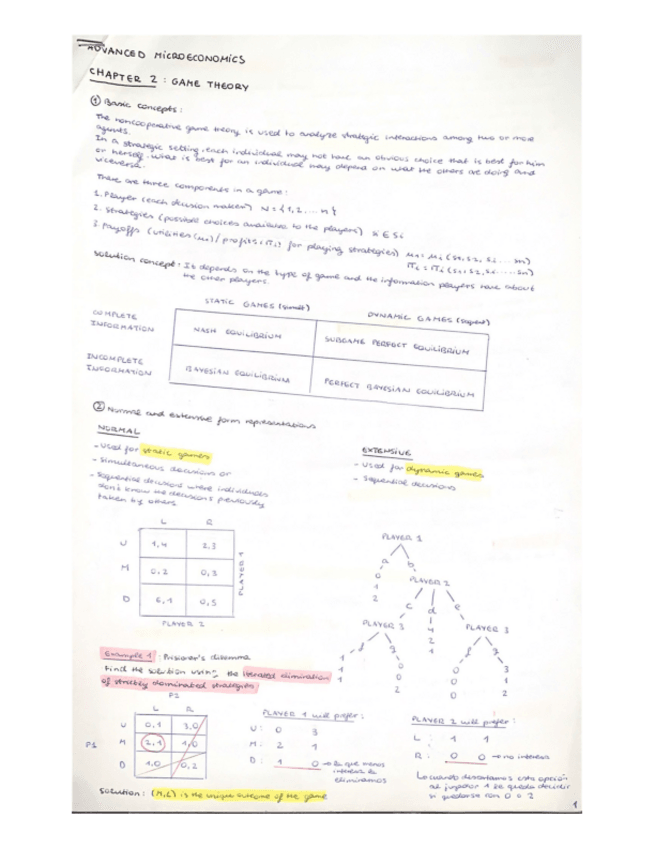 ADVANCED MICROECONOMICS
CHAPTER 2 : GAME THEORY
① Basic concepts :
The noncooperative game theory is used to analyze strategic interactions among two or more
agents.
In a strategic setting, each individual may not have an obvious choice that is best for him
or herself. What is best for an individual may depend on what the others are doing and
viceversa.
There are three components in a game :
1. Player (each decision maker) N = {1,2,...n}
2. Strategies (possible choices available to the players)
3. Payoffs (utilities / profits for playing strategies)
Solution concept : It depends on the type of game and the information players have about
the other players.
STATIC GAMES DYNAMIC GAMES
COMPLETE
INFORMATION
NASH EQUILIBRIUM SUBGAME PERFECT EQUILIBRIUM
INCOMPLETE
INFORMATION
BAYESIAN EQUILIBRIUM PERFECT BAYESIAN EQUILIBRIUM
② Normal and extensive form representations
NORMAL
- Used for static games
- Simultaneous decisions or
- Sequential decisions where individuals
don't know the decisions previously
taken by others
EXTENSIVE
- Used for dynamic games
- Sequential decisions
L R
U 1,4 2,3
M 0,2 0,3
D 6,1 0,5
PLAYER 1
PLAYER 2
PLAYER 1
a b
0
1
2
PLAYER 2
c d e
4
2
1
PLAYER 3 PLAYER 3
f g f g
1 0 0 3
1 0 0 0
1 2 0 2
Example 1 : Prisioner's dilemma
Find the solution using the iterated elimination
of strictly dominated strategies
P2
L R
U 0,1 3,0
P1 M 2,1 1,0
D 1,0 0,2
PLAYER 1 will prefer :
U : 0 3
M : 2 1
D : 1 0 → la que menos
interesa la
eliminamos
PLAYER 2 will prefer :
L : 1 1
R : 0 0 → no interesa
cuando descartamos esta opción
al jugador 1 le queda decidir
si quedarse con 0 o 2
Solution : (M,L) is the unique outcome of the game
1